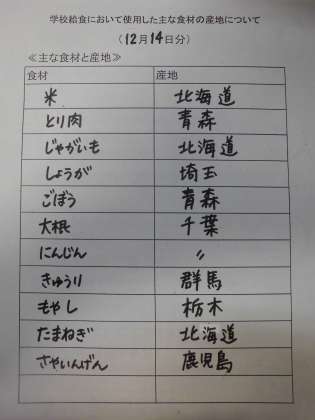 学校給食において使用した主な食材の産地について
(12月14日分)
≪主な食材と産地≫
食材 産地
米 北海道
とり肉 青森
じゃがいも 北海道
しょうが 埼玉
ごぼう 青森
大根 千葉
にんじん 〃
きゅうり 群馬
もやし 栃木
たまねぎ 北海道
さやいんげん 鹿児島